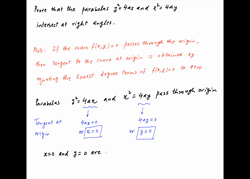 Prove that the parabolas y²=4ax and x²=4ay
intersect at right angles.
Note: If the curve f(x,y)=0 passes through the origin,
then tangent to the curve at origin is obtained by
equating the lowest degree terms of f(x,y)=0 to zero
Parabolas y²=4ax and x²=4ay pass through origin
Tangent at origin 4ax=0 4ay=0
or x=0 or y=0
x=0 and y=0 are